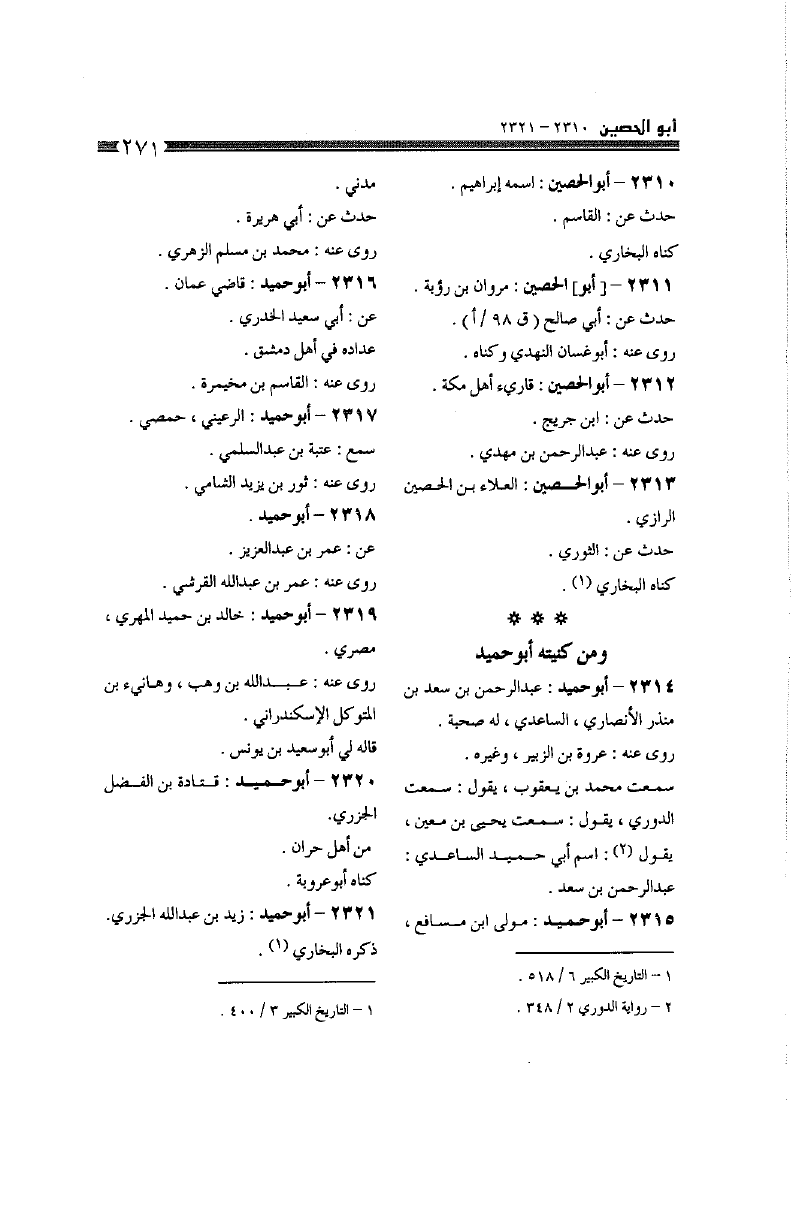 أبو الحصين ٢٣١٠ – ٢٣٢١
٢٧١
٢٣١٠ – أبوالحصين : اسمه إبراهيم .
حدث عن : القاسم .
كناه البخاري .
٢٣١١ – [ أبو] الحصين : مروان بن رؤبة .
حدث عن : أبي صالح ( ق ٩٨ /أ) .
روى عنه : أبوغسان النهدي وكناه .
٢٣١٢ – أبوالحصين : قاريء أهل مكة .
حدث عن : ابن جريج .
روى عنه : عبدالرحمن بن مهدي .
٢٣١٣ – أبوالحصين : العلاء بن الحصين
الرازي .
حدث عن : الثوري .
كناه البخاري (١) .
* * *
ومن كنيته أبوحميد
٢٣١٤ – أبوحميد : عبدالرحمن بن سعد بن
منذر الأنصاري ، الساعدي ، له صحبة .
روى عنه : عروة بن الزبير ، وغيره .
سمعت محمد بن يعقوب ، يقول : سمعت
الدوري ، يقول : سمعت يحيى بن معين ،
يقول (٢) : اسم أبي حميد الساعدي :
عبدالرحمن بن سعد .
٢٣١٥ – أبوحميد : مولى ابن مسافع ،
١ – التاريخ الكبير ٦ / ٥١٨ .
٢ – رواية الدوري ٢ / ٣٤٨ .
مدني .
حدث عن : أبي هريرة .
روى عنه : محمد بن مسلم الزهري .
٢٣١٦ – أبوحميد : قاضي عمان .
عن : أبي سعيد الخدري .
عداده في أهل دمشق .
روى عنه : القاسم بن مخيمرة .
٢٣١٧ – أبوحميد : الرعيني ، حمصي .
سمع : عتبة بن عبدالسلمي .
روى عنه : ثور بن يزيد الشامي .
٢٣١٨ – أبوحميد .
عن : عمر بن عبدالعزيز .
روى عنه : عمر بن عبدالله القرشي .
٢٣١٩ – أبوحميد : خالد بن حميد المهري ،
مصري .
روى عنه : عبدالله بن وهب ، وهانيء بن
المتوكل الإسكندراني .
قاله لي أبوسعيد بن يونس .
٢٣٢٠ – أبوحميد : قتادة بن الفضل
الجزري.
من أهل حران .
كناه أبوعروبة .
٢٣٢١ – أبوحميد : زيد بن عبدالله الجزري.
ذكره البخاري (١) .
١ – التاريخ الكبير ٣ / ٤٠٠ .